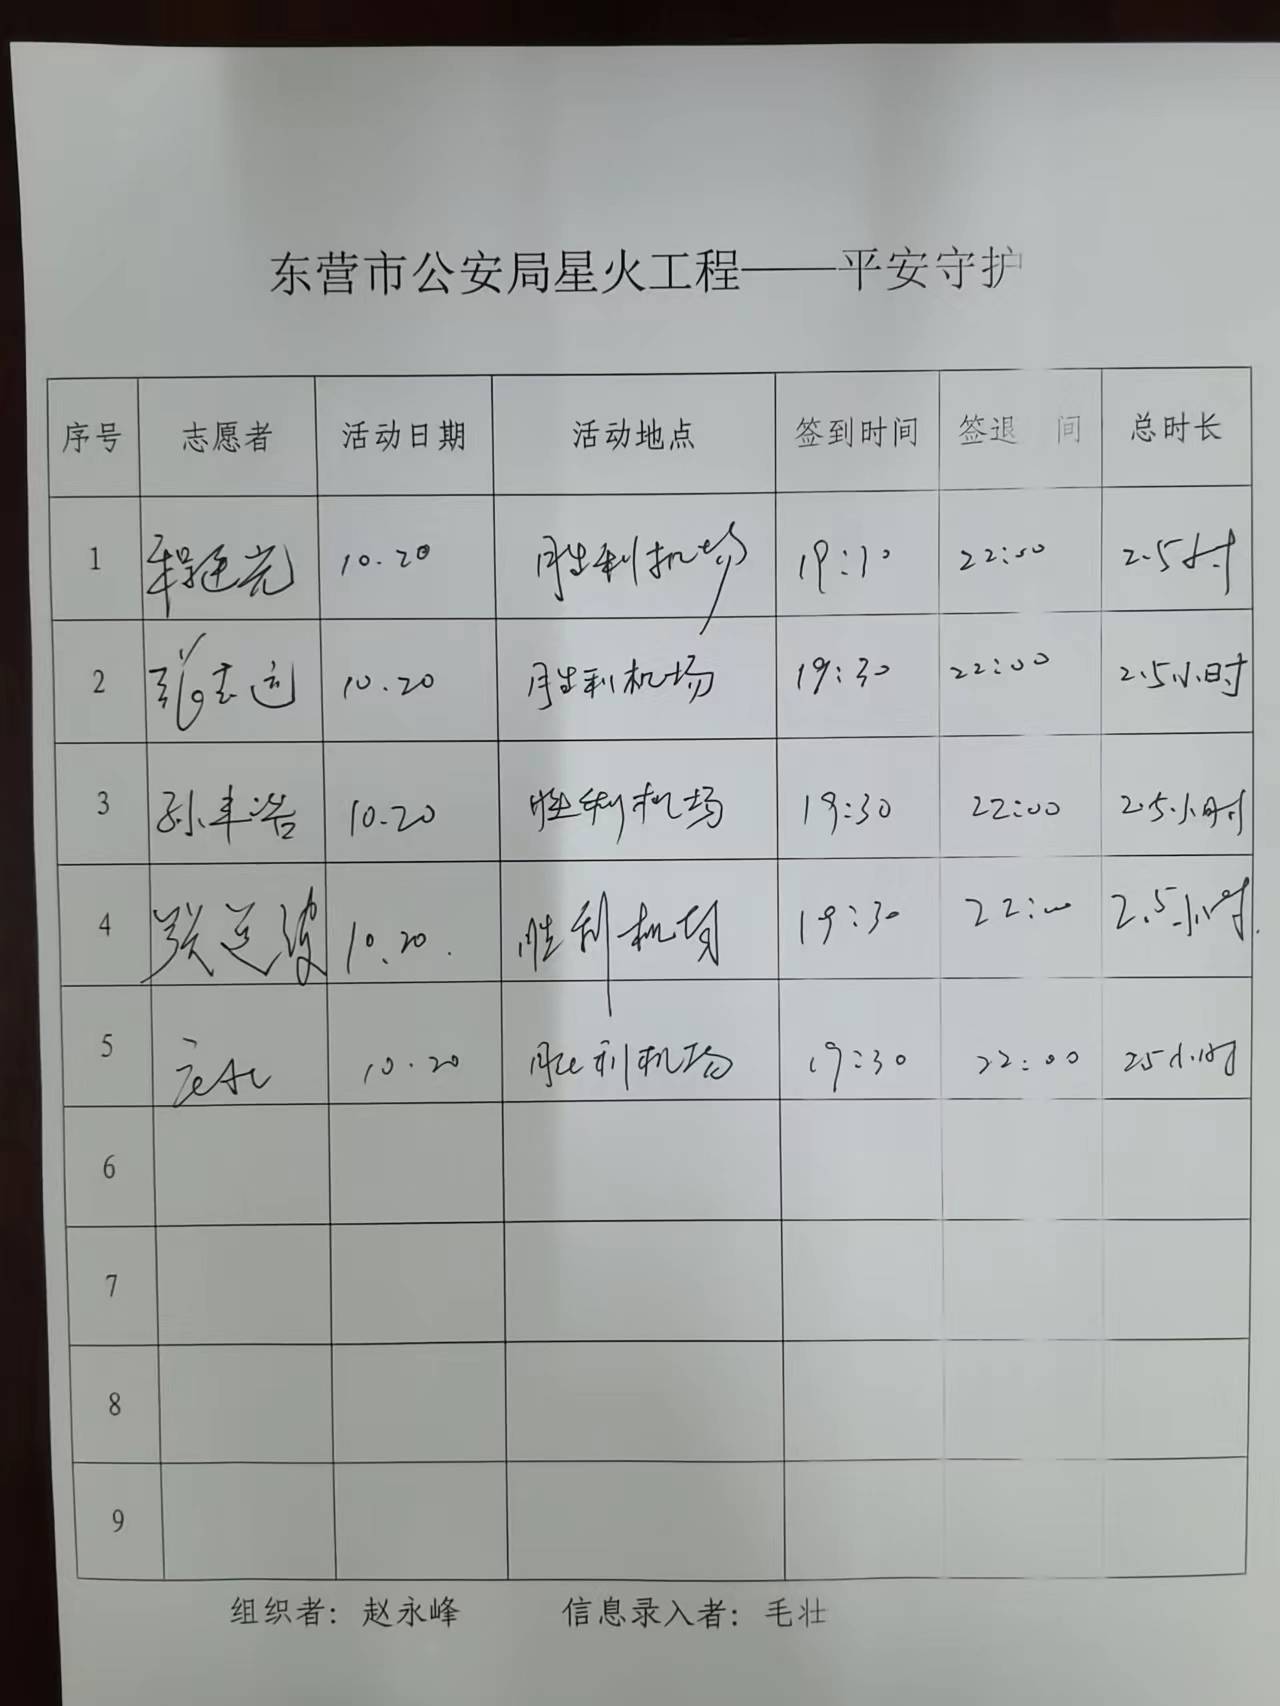 东营市公安局星火工程——平安守护
序号 志愿者 活动日期 活动地点 签到时间 签退 间 总时长
1 程廷亮 10.20 胜利机场 19:30 22:00 2.5时
2 张志远 10.20 胜利机场 19:30 22:00 2.5小时
3 孙丰浩 10.20 胜利机场 19:30 22:00 2.5小时
4 10.20. 胜利机场 19:30 22:00 2.5小时.
5 10.20 胜利机场 19:30 22:00 25小时
6
7
8
9
组织者：赵永峰 信息录入者：毛壮